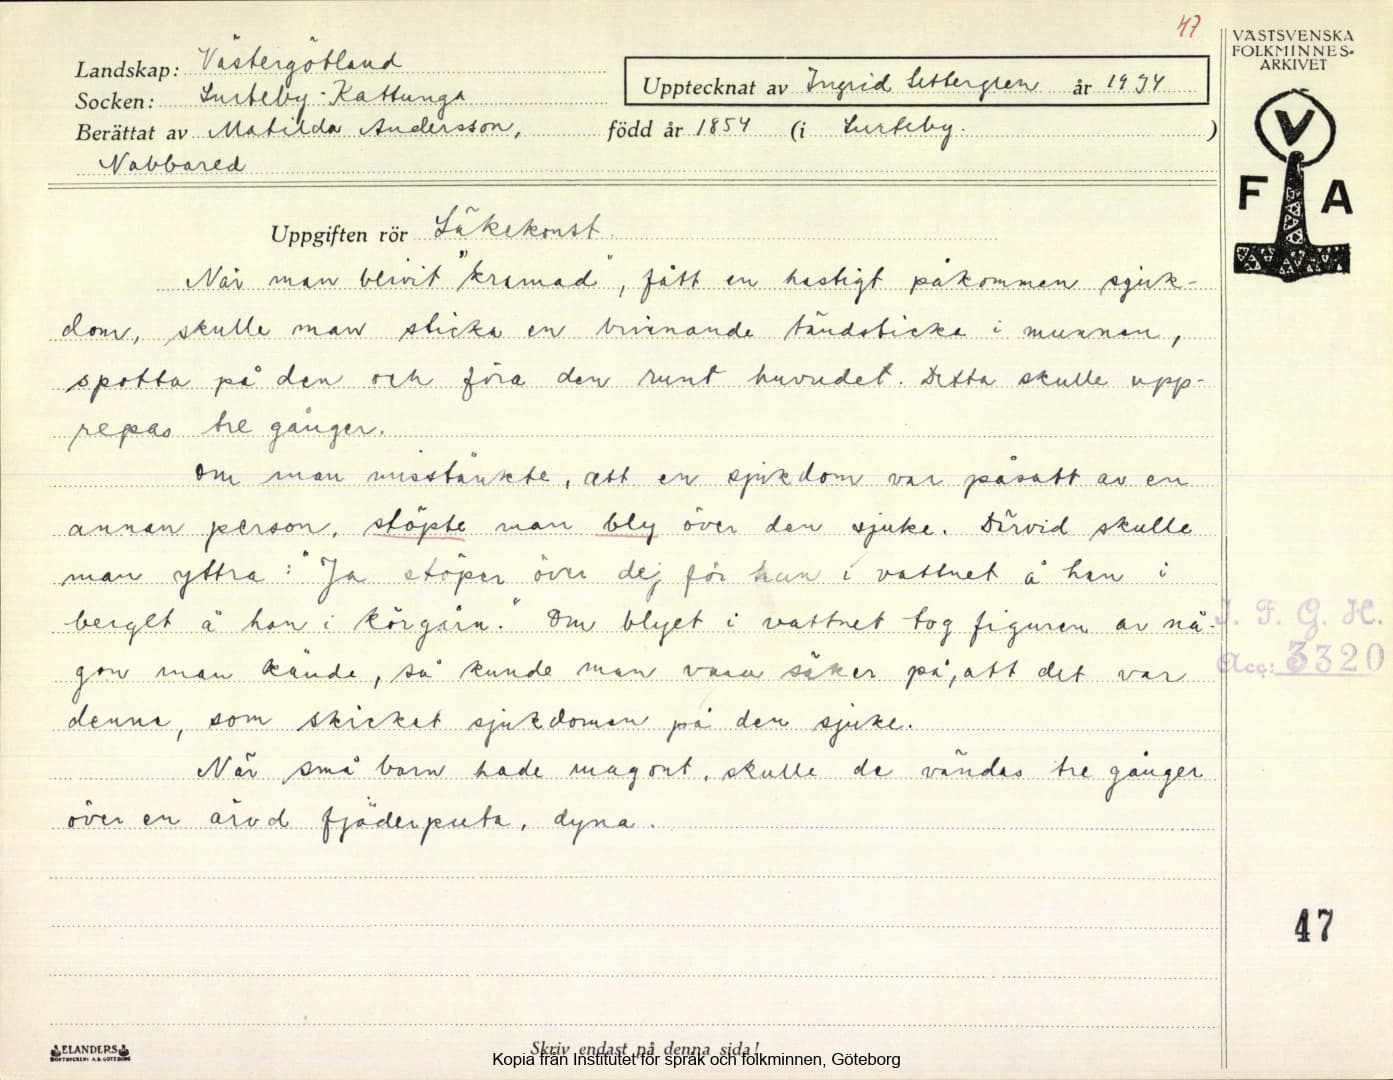 47
VÄSTSVENSKA
FOLKMINNES-
ARKIVET
Landskap: Västergötland
Upptecknat av Ingrid Settergren år 1934
Socken: Surteby-Kattunga
Berättat av Matilda Andersson, född år 1854 (i Surteby. )
Nabbared
V
F A
Uppgiften rör Läkekonst.
När man blivit "kramad", fått en hastigt påkommen sjuk-
dom, skulle man sticka en brinnande tändsticka i munnen,
spotta på den och föra den runt huvudet. Detta skulle upp-
repas tre gånger.
Om man misstänkte, att en sjukdom var påsatt av en
annan person, stöpte man bly över den sjuke. Därvid skulle
man yttra: "Ja stöper över dej för han i vattnet å han i
berget å han i körgårn." Om blyet i vattnet tog figuren av nå-
gon man kände, så kunde man vara säker på, att det var
denna, som skickat sjukdomen på den sjuke.
När små barn hade magont, skulle de vändas tre gånger
över en ärvd fjäderputa, dyna.
I. F. G. H.
Acc: 3320
47
ELANDERS
BOKTRYCKERI A.B. GÖTEBORG
Skriv endast på denna sida!
Kopia från Institutet för språk och folkminnen, Göteborg